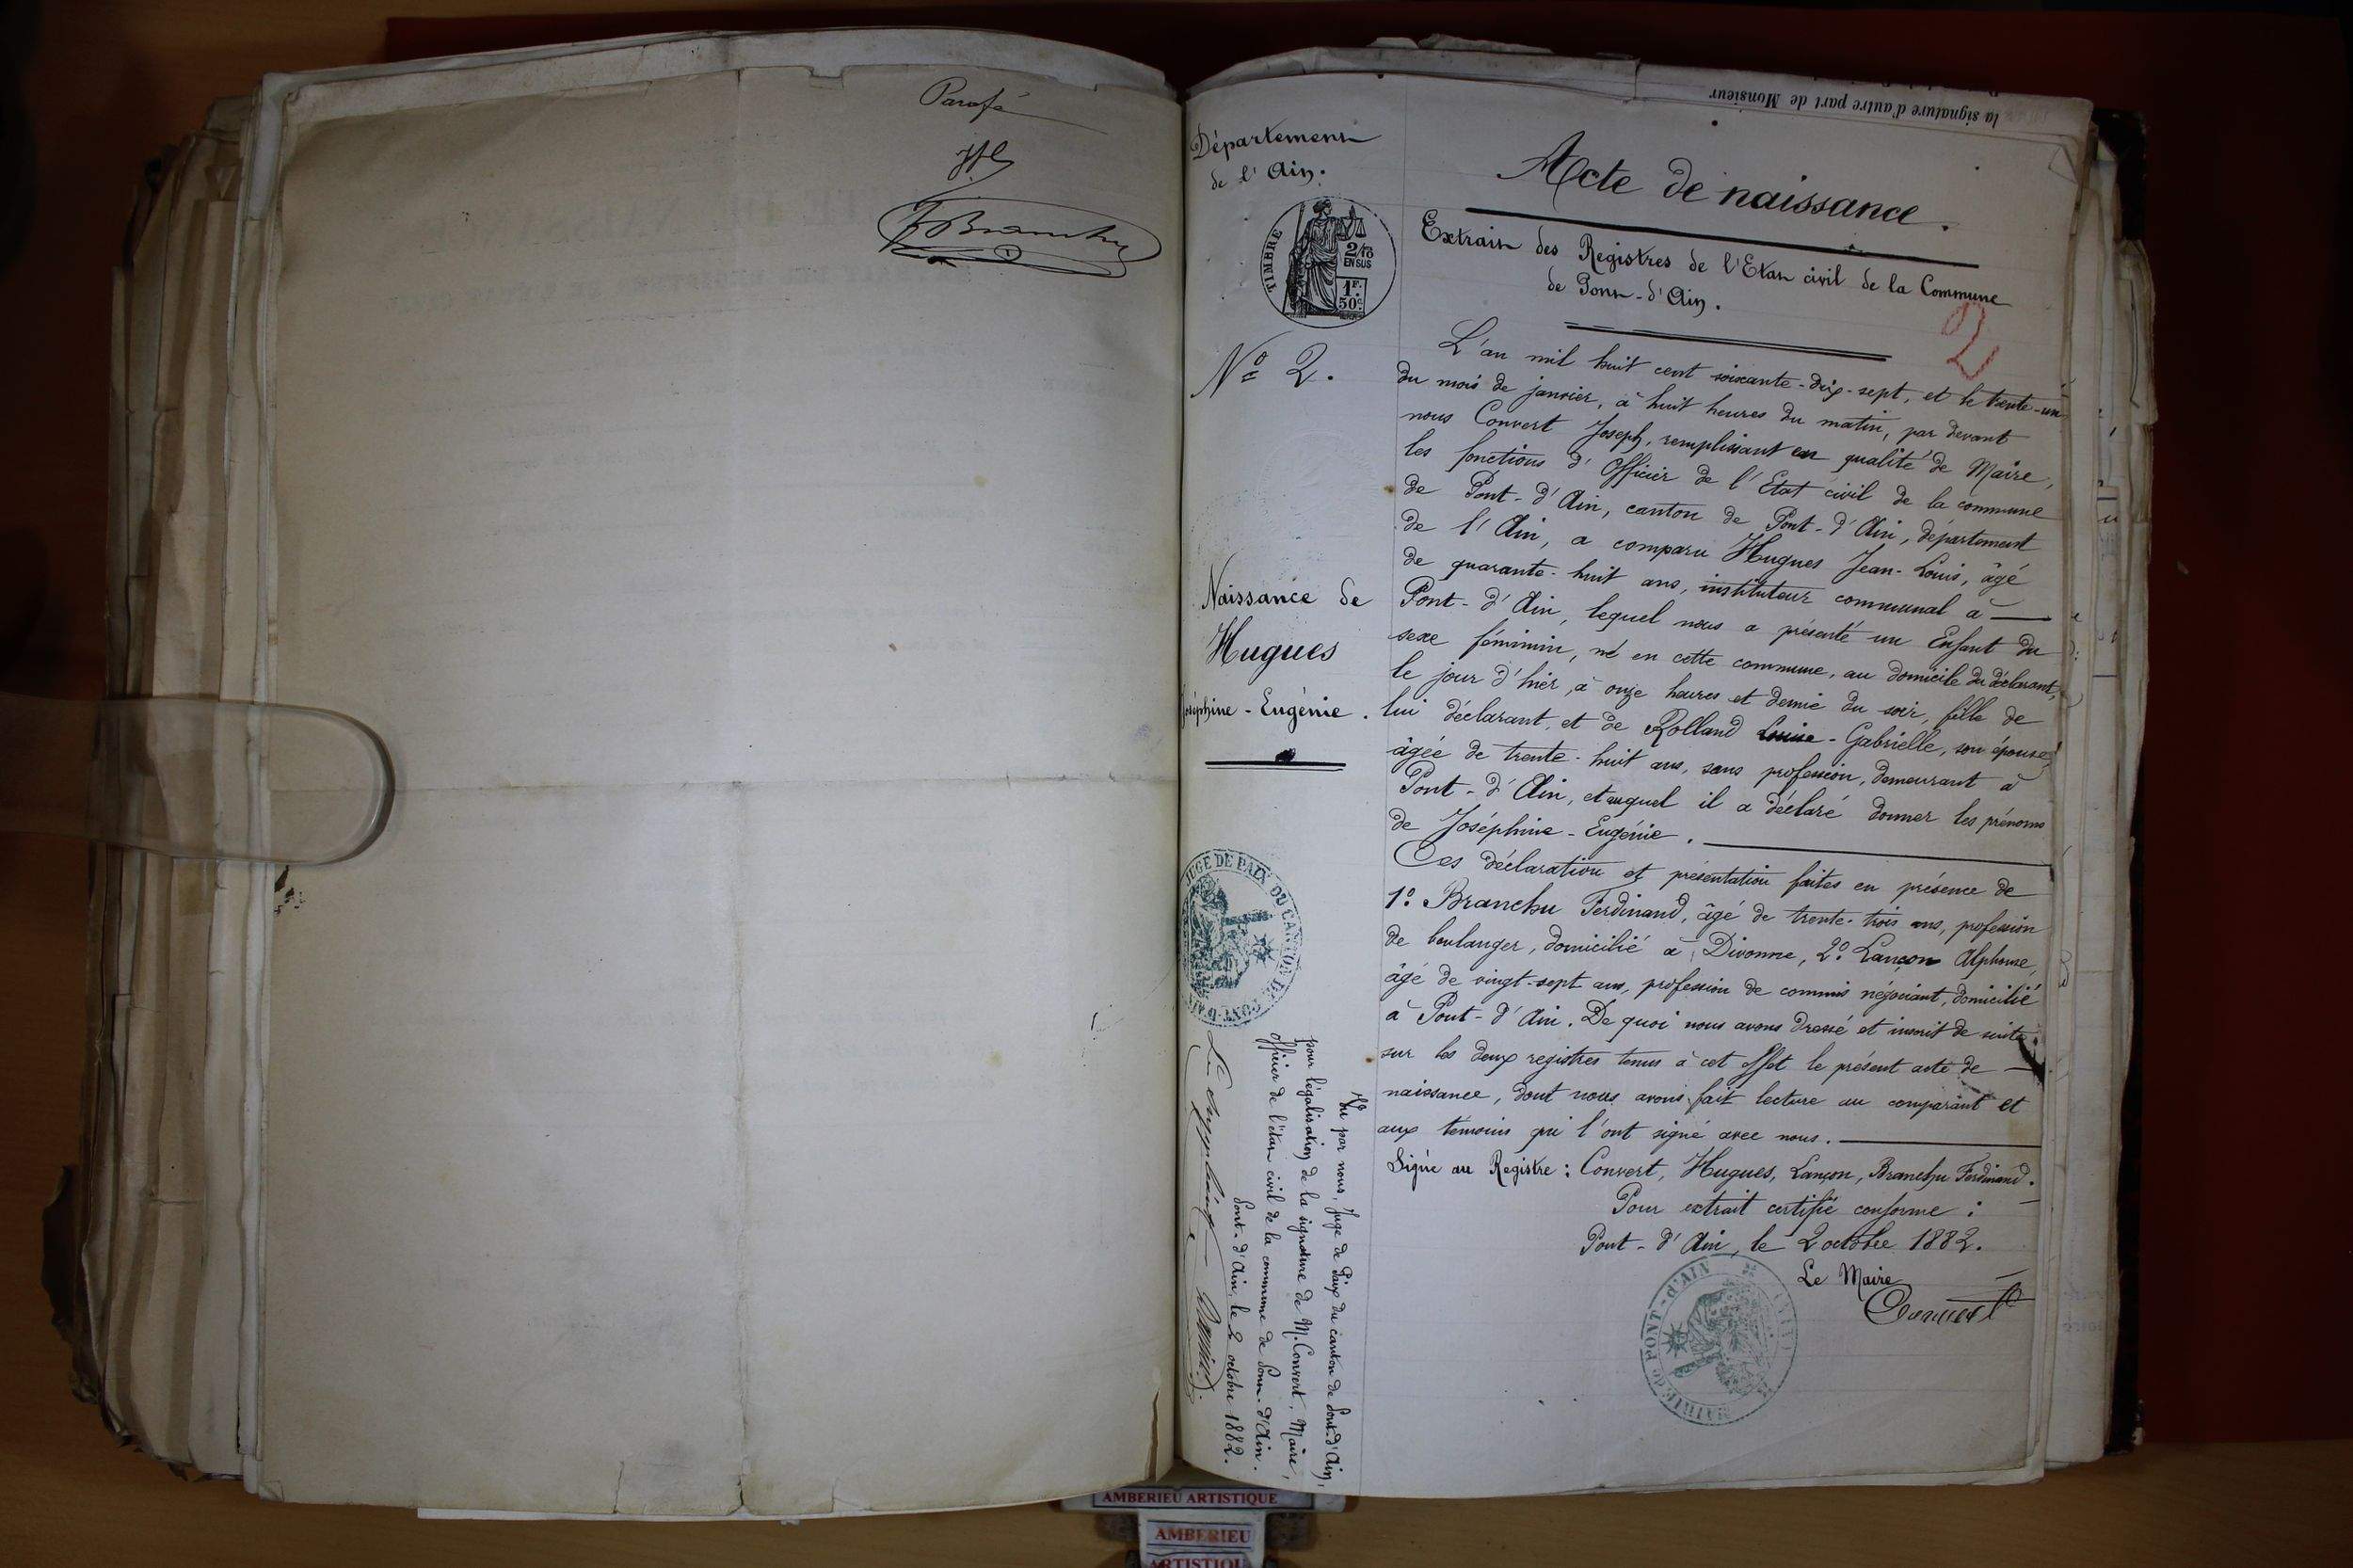 Parafé
Branchu
la signature d'autre part de Monsieur
Département
de l'Ain.
TIMBRE
2/10
EN SUS
1F.
50c.
No 2.
Naissance de
Hugues
Joséphine - Eugénie.
JUGE DE PAIX DU CANTON DE PONT-D'AIN
Acte de naissance.
Extrait des Registres de l'Etat civil de la Commune
de Pont-d'Ain.
2
L'an mil huit cent soixante-dix-sept, et le trente-un
du mois de janvier, à huit heures du matin, par devant
nous Convert Joseph, remplissant en qualité de Maire,
les fonctions d'Officier de l'Etat civil de la commune
de Pont-d'Ain, canton de Pont-d'Ain, département
de l'Ain, a comparu Hugues Jean-Louis, âgé
de quarante-huit ans, instituteur communal à
Pont-d'Ain, lequel nous a présenté un Enfant du
sexe féminin, né en cette commune, au domicile du déclarant,
le jour d'hier, à onze heures et demie du soir, fille de
lui déclarant, et de Rolland Louise-Gabrielle, son épouse,
âgée de trente-huit ans, sans profession, demeurant à
Pont-d'Ain, et auquel il a déclaré donner les prénoms
de Joséphine-Eugénie.
Ces déclaration et présentation faites en présence de
1o. Branchu Ferdinand, âgé de trente-trois ans, profession
de boulanger, domicilié à Divonne, 2o. Lançon Alphonse,
âgé de vingt-sept ans, profession de commis négociant, domicilié
à Pont-d'Ain. De quoi nous avons dressé et inscrit de suite
sur les deux registres tenus à cet effet le présent acte de
naissance, dont nous avons fait lecture au comparant et
aux témoins qui l'ont signé avec nous.
Signé au Registre : Convert, Hugues, Lançon, Branchu Ferdinand.
Pour extrait certifié conforme :
Pont-d'Ain, le 2 octobre 1882.
Le Maire
Convert
MAIRIE de PONT-d'AIN (AIN)
Vu par nous, Juge de Paix du canton de Pont-d'Ain,
pour légalisation de la signature de M. Convert, Maire,
officier de l'état civil de la commune de Pont-d'Ain.
Pont-d'Ain, le 2 octobre 1882.
AMBERIEU ARTISTIQUE
AMBERIEU
ARTISTIQUE